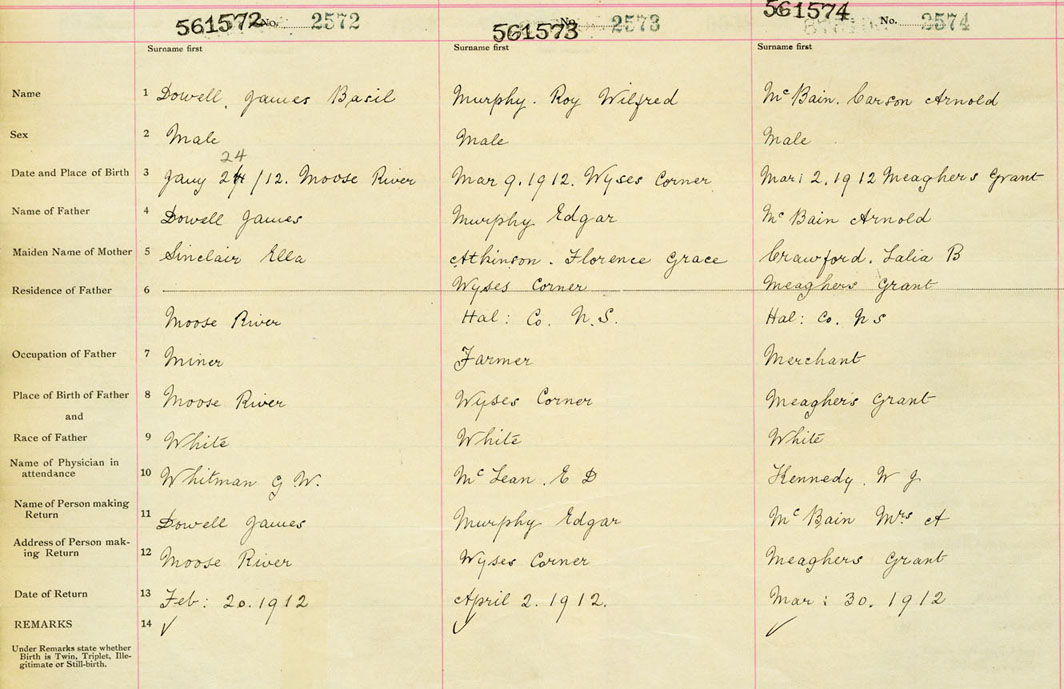 561572 No. 2572 561573 No. 2573 561574 No. 2574
Surname first Surname first Surname first
Name 1 Dowell, James Basil Murphy. Roy Wilfred McBain. Carson Arnold
Sex 2 Male Male Male
24
Date and Place of Birth 3 Jany 24 /12. Moose River Mar 9. 1912. Wyses Corner Mar: 2. 1912 Meaghers Grant
Name of Father 4 Dowell James Murphy Edgar McBain Arnold
Maiden Name of Mother 5 Sinclair Ella Atkinson. Florence Grace Crawford. Lalia B
Residence of Father 6 Wyses Corner Meaghers Grant
Moose River Hal: Co. N.S. Hal: Co. N S
Occupation of Father 7 Miner Farmer Merchant
Place of Birth of Father 8 Moose River Wyses Corner Meaghers Grant
and
Race of Father 9 White White White
Name of Physician in
attendance 10 Whitman G. W. McLean. E D Kennedy. W J
Name of Person making
Return 11 Dowell James Murphy Edgar McBain Mrs A
Address of Person mak-
ing Return 12 Moose River Wyses Corner Meaghers Grant
Date of Return 13 Feb: 20. 1912 April 2. 1912. Mar: 30. 1912
REMARKS 14 ✓ ✓ ✓
Under Remarks state whether
Birth is Twin, Triplet, Ille-
gitimate or Still-birth.